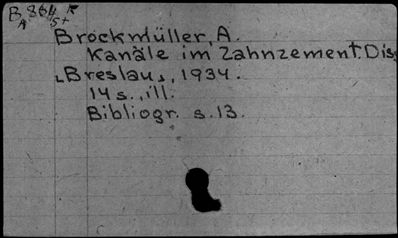 Brockmüller, A.
Kanäle im Zahnzement. Diss.
Breslau, 1934.
14 s., ill.
Bibliogr. s. 13.